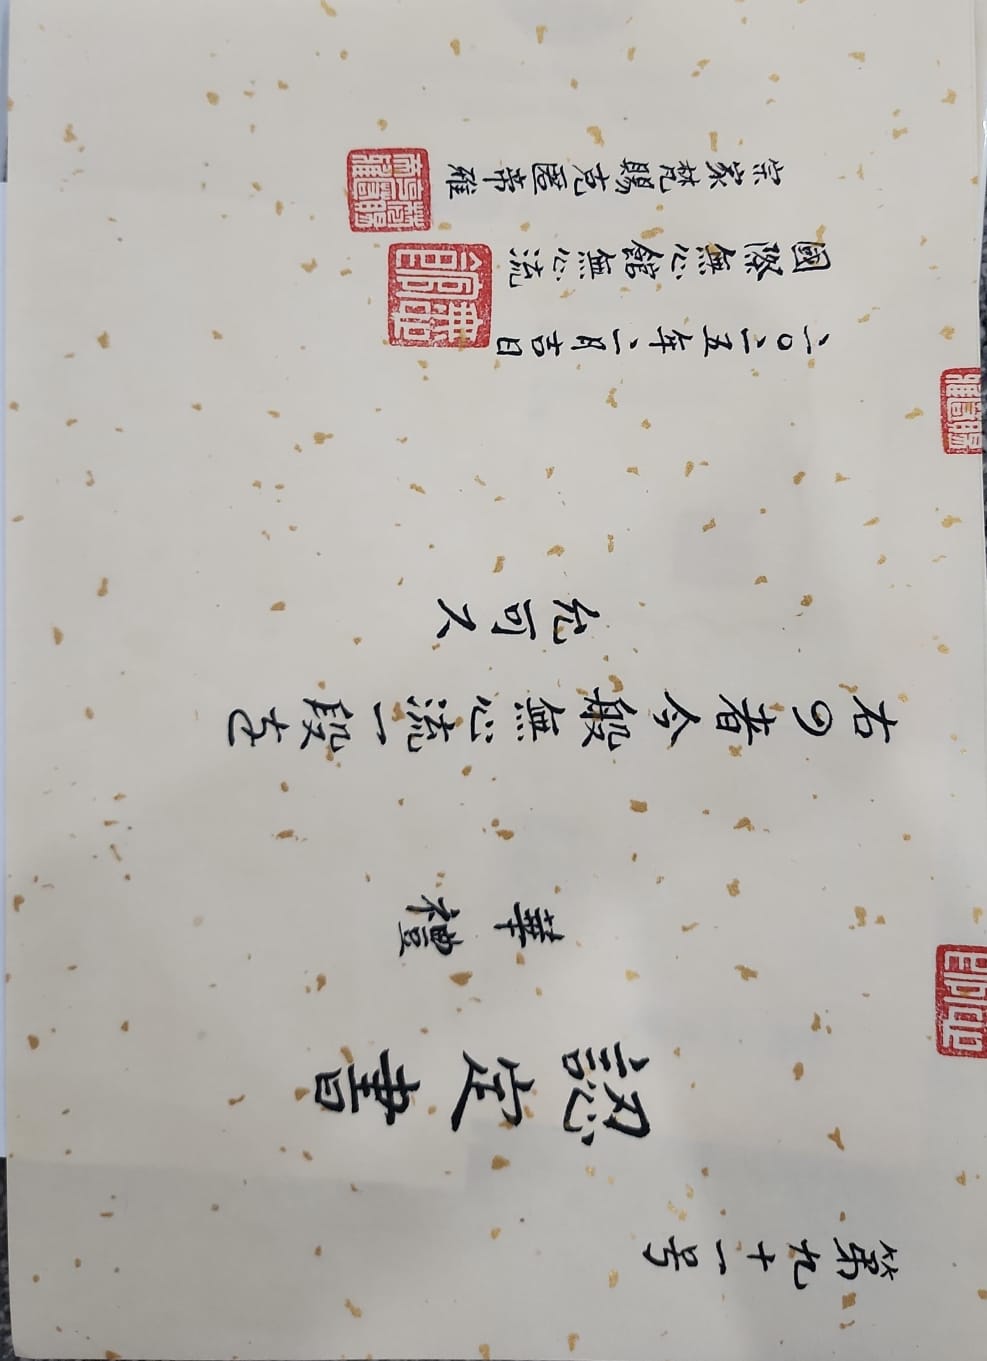 第九十一号
認定書
華禮
右の者今般無心流一段を
允可ス
二〇二五年二月吉日
國際無心館無心流
宗家梵賜克匿帝雅